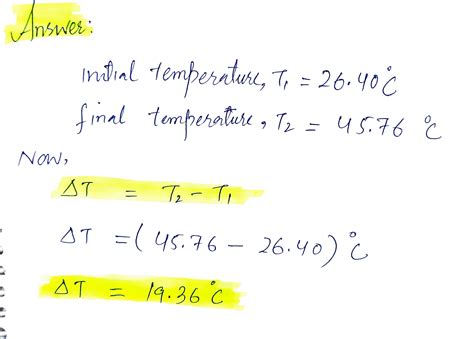 Answer:
initial temperature, T₁ = 26.40°C
final temperature, T₂ = 45.76 °C
Now,
ΔT = T₂ - T₁
ΔT = (45.76 - 26.40)°C
ΔT = 19.36°C